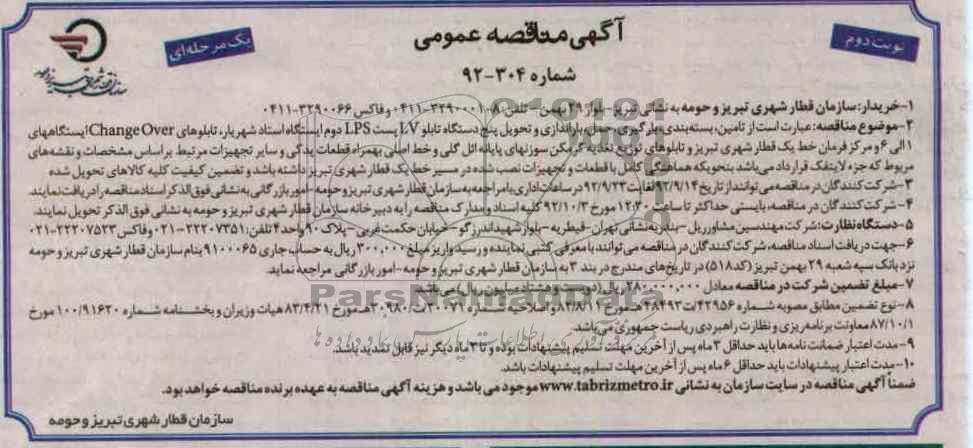 آگهی مناقصه عمومی
شماره ۳۰۴-۹۲
نوبت دوم
یک مرحله‌ای
۱-خریدار: سازمان قطار شهری تبریز و حومه به نشانی تبریز-بلوار ۲۹ بهمن- تلفن: ۸-۳۲۹۰۰۰۱-۰۴۱۱ و فاکس ۳۲۹۰۰۶۶-۰۴۱۱
۲-موضوع مناقصه: عبارت است از تامین، بسته‌بندی، بارگیری، حمل، باراندازی و تحویل پنج دستگاه تابلو LV پست LPS دوم ایستگاه استاد شهریار، تابلوهای Change Over ایستگاههای
۱ الی ۶ و مرکز فرمان خط یک قطار شهری تبریز و تابلوهای توزیع تغذیه گرمکن سوزنهای پایانه ائل گلی و خط اصلی بهمراه قطعات یدکی و سایر تجهیزات مرتبط براساس مشخصات و نقشه‌های
مربوط که جزء لاینفک قرارداد می‌باشد بنحویکه هماهنگی کامل با قطعات و تجهیزات نصب شده در مسیر خط یک قطار شهری تبریز داشته باشد و تضمین کیفیت کلیه کالاهای تحویل شده
۳-شرکت کنندگان در مناقصه می‌توانند از تاریخ ۹۲/۹/۱۴ لغایت ۹۲/۹/۲۳ در ساعات اداری با مراجعه به سازمان قطار شهری تبریز و حومه-امور بازرگانی به نشانی فوق الذکر اسناد مناقصه را دریافت نمایند.
۴-شرکت کنندگان در مناقصه، بایستی حداکثر تا ساعت ۱۲:۳۰ مورخ ۹۲/۱۰/۳ کلیه اسناد و مدارک مناقصه را به دبیرخانه سازمان قطار شهری تبریز و حومه به نشانی فوق الذکر تحویل نمایند.
۵-دستگاه نظارت: شرکت مهندسین مشاور ریل-بندر به نشانی تهران-قیطریه-بلوار شهید اندرزگو-خیابان حکمت غربی-پلاک ۹۰ واحد ۴ تلفن: ۲۲۲۰۷۳۵۱-۰۲۱ و فاکس ۲۲۲۰۷۵۲۳-۰۲۱
۶-جهت دریافت اسناد مناقصه، شرکت کنندگان در مناقصه می‌توانند با معرفی کتبی نماینده و رسید واریز مبلغ ۳۰۰,۰۰۰ ریال به حساب جاری ۹۱۰۰۰۶۵ بنام سازمان قطار شهری تبریز و حومه
نزد بانک سپه شعبه ۲۹ بهمن تبریز (کد ۵۱۸) در تاریخ‌های مندرج در بند ۳ به سازمان قطار شهری تبریز و حومه-امور بازرگانی مراجعه نماید.
۷-مبلغ تضمین شرکت در مناقصه معادل ۲۸۰,۰۰۰,۰۰۰ ریال (دویست و هشتاد میلیون ریال) می‌باشد.
۸-نوع تضمین مطابق مصوبه شماره ۴۲۹۵۶/ت۲۸۴۹۳هـ مورخ ۸۲/۸/۱۱ و اصلاحیه شماره ۳۰۰۷۱/ت۳۰۹۸۰هـ مورخ ۸۳/۴/۲۱ هیات وزیران و بخشنامه شماره ۱۰۰/۹۱۶۲۰ مورخ
۸۷/۱۰/۱ معاونت برنامه‌ریزی و نظارت راهبردی ریاست جمهوری می‌باشد.
۹-مدت اعتبار ضمانت نامه‌ها باید حداقل ۳ ماه پس از آخرین مهلت تسلیم پیشنهادات بوده و تا ۳ ماه دیگر نیز قابل تمدید باشد.
۱۰-مدت اعتبار پیشنهادات باید حداقل ۶ ماه پس از آخرین مهلت تسلیم پیشنهادات باشد.
ضمناً آگهی مناقصه در سایت سازمان به نشانی www.tabrizmetro.ir موجود می باشد و هزینه آگهی مناقصه به عهده برنده مناقصه خواهد بود.
سازمان قطار شهری تبریز و حومه
ParsNamadData